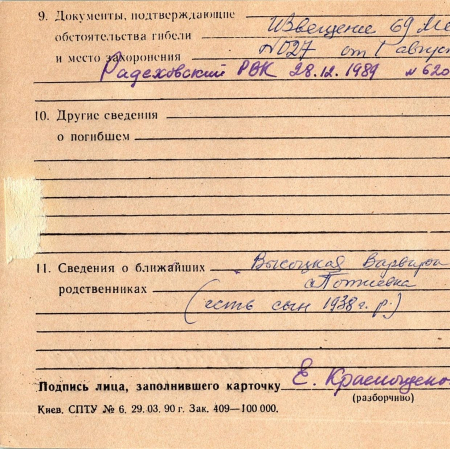 9. Документы, подтверждающие Извещение 69 Ме
обстоятельства гибели № 027 от 1 август
и место захоронения
Радеховский РВК 28.12.1989 № 620
10. Другие сведения
о погибшем
11. Сведения о ближайших Высоцкая Варвара
родственниках
(есть сын 1938 г. р.)
Подпись лица, заполнившего карточку Е. Краснощеко
(разборчиво)
Киев. СПТУ № 6. 29.03.90 г. Зак. 409—100 000.